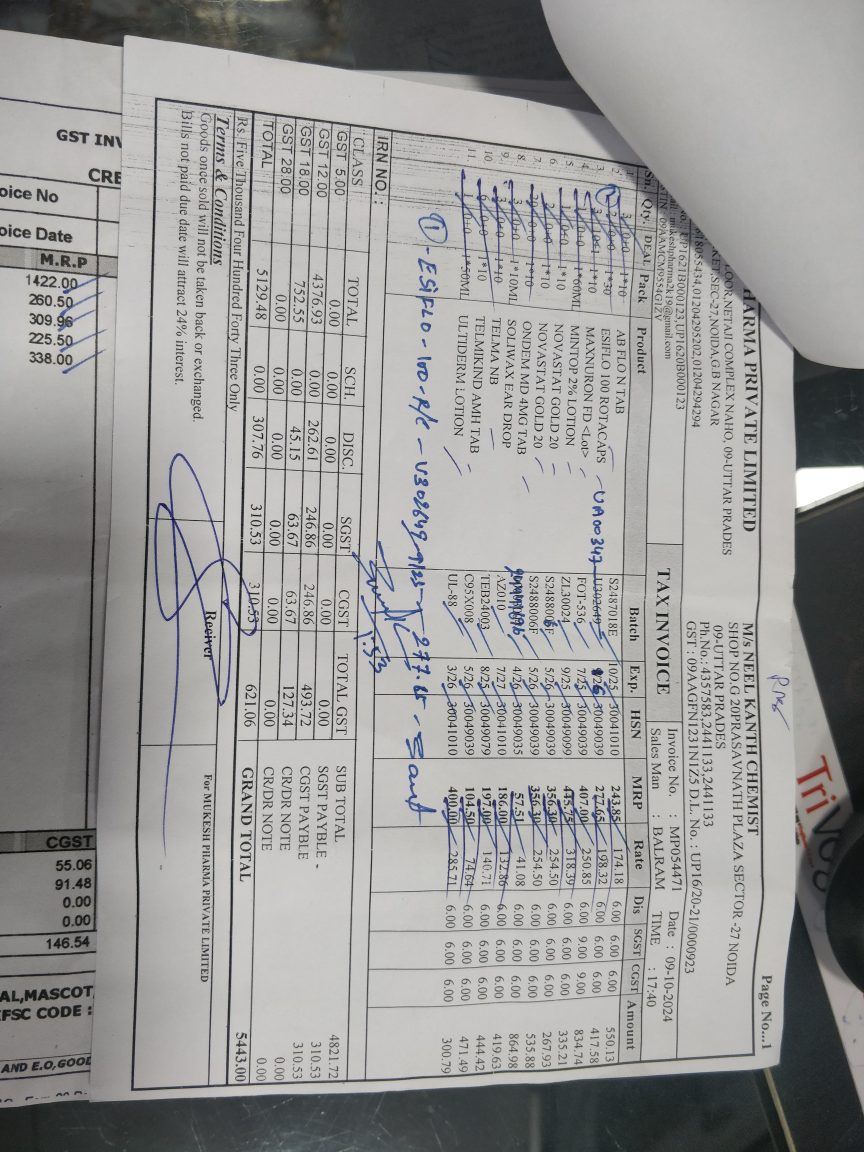 HARMA PRIVATE LIMITED
LOOR,NETAJI COMPLEX NAHO, 09-UTTAR PRADES
SEC-27,NOIDA,G.B NAGAR
8055434,01204295202,01204294294
UP1621B000123,UP1620B000123
mukeshpharma2k19@gmail.com
09AAMCM9554G1ZV
TAX INVOICE
Page No...1
M/s NEEL KANTH CHEMIST
SHOP NO.G 20PRASAVNATH PLAZA SECTOR -27 NOIDA
09-UTTAR PRADES
Ph.No.: 4357583,2441133,2441133
GST : 09AAGFN1231N1Z5 D.L. No. : UP16/20-21/0000923
Invoice No. : MP054471 Date : 09-10-2024
Sales Man : BALRAM TIME : 17:40
Sn. Qty. DEAL Pack Product Batch Exp. HSN MRP Rate Dis SGST CGST Amount
1*10 AB FLO N TAB S2487018E 10/25 30041010 243.85 174.18 6.00 6.00 6.00 550.13
2. 1*30 ESIFLO 100 ROTACAPS UA00347 30049039 277.65 198.32 6.00 6.00 6.00 417.58
3. 1*10 MAXNURON FD <Lot> FOT-536 7/25 30049039 407.00 250.85 6.00 9.00 9.00 834.74
4. 1*60ML MINTOP 2% LOTION ZL30024 9/25 30049099 445.75 318.39 6.00 6.00 6.00 335.21
5. 1*10 NOVASTAT GOLD 20 5/26 30049039 356.30 254.50 6.00 6.00 6.00 267.93
6. 1*10 NOVASTAT GOLD 20 S2488006F 5/26 30049039 356.30 254.50 6.00 6.00 6.00 535.88
7. 1*10 ONDEM MD 4MG TAB 4/26 30049035 57.51 41.08 6.00 6.00 6.00 864.98
8. 1*10ML SOLIWAX EAR DROP AZ010 7/27 30041010 186.00 132.86 6.00 6.00 6.00 419.63
9. 1*10 TELMA NB TEB24003 8/25 30049079 197.00 140.71 6.00 6.00 6.00 444.42
10. 1*10 TELMIKIND AMH TAB C95X008 5/26 30049039 104.50 74.64 6.00 6.00 6.00 471.49
11. 1*50ML ULTIDERM LOTION UL-88 3/26 30041010 400.00 285.71 6.00 6.00 6.00 300.79
① - ESIFLO-100-R/C - U302649 - 9/25 - 277.65
IRN NO. :
CLASS TOTAL SCH. DISC. SGST CGST TOTAL GST
GST 5.00 0.00 0.00 0.00 0.00 0.00 0.00
GST 12.00 4376.93 0.00 262.61 246.86 246.86 493.72
GST 18.00 752.55 0.00 45.15 63.67 63.67 127.34
GST 28.00 0.00 0.00 0.00 0.00 0.00 0.00
TOTAL 5129.48 0.00 307.76 310.53 310.53 621.06
SUB TOTAL 4821.72
SGST PAYBLE 310.53
CGST PAYBLE 310.53
CR/DR NOTE 0.00
CR/DR NOTE 0.00
Rs. Five Thousand Four Hundred Forty Three Only
GRAND TOTAL 5443.00
Terms & Conditions
Goods once sold will not be taken back or exchanged.
Bills not paid due date will attract 24% interest.
Reciver
For MUKESH PHARMA PRIVATE LIMITED
GST INV
CRE
oice No
oice Date
M.R.P
1422.00
260.50
309.96
225.50
338.00
CGST
55.06
91.48
0.00
0.00
146.54
AL,MASCOT
FSC CODE :
AND E.O,GOOD